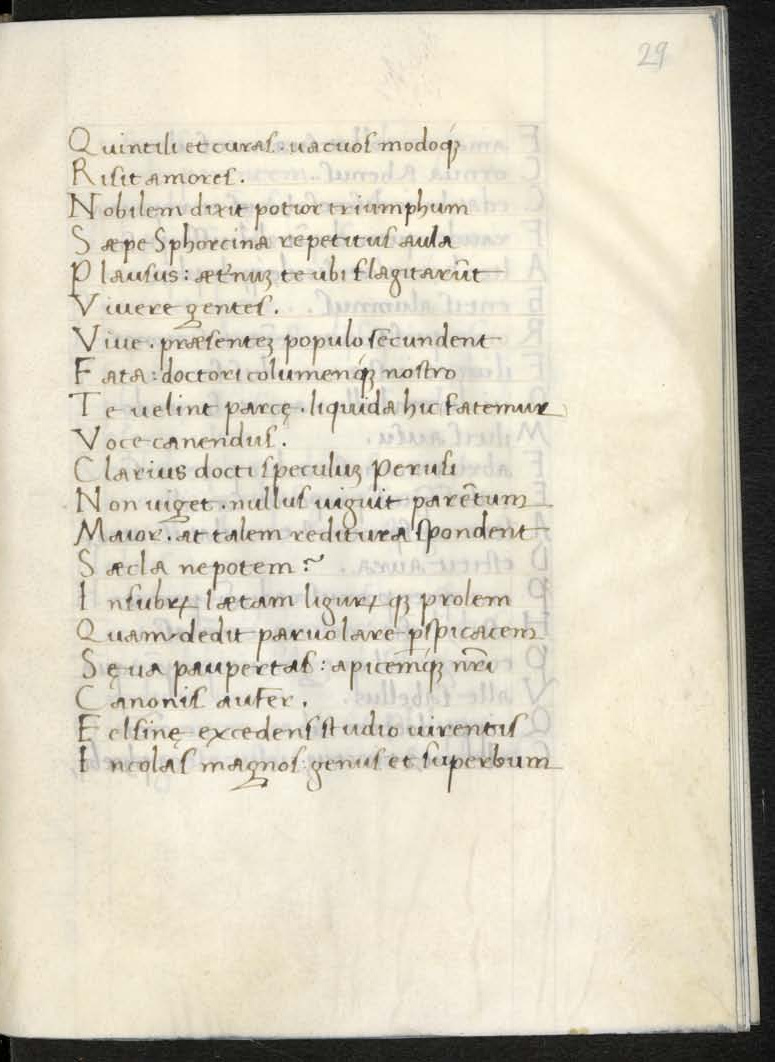 29
Quintili et curas. uacuos modoq́ꝫ
Risit amores.
Nobilem dixit potior triumphum
Sæpe Sphorcina repetitus aula
Plausus: æt̃nuꝫ te ubi flagitarũt
Viuere gentes.
Viue. præsenteꝫ populo secundent
Fata: doctori columenq́ꝫ nostro
Te uelint parcę. liquida hic fatemur
Voce canendus.
Clarius docti speculuꝫ Perusi
Non uiget. nullus uiguit parẽtum
Maior. at talem reditura spondent
Sæcla nepotem?
Insubrꝝ lætam ligurꝝ qꝫ prolem
Quam dedit paruo lare ꝑspicacem
Sęua paupertas: apicemq́ꝫ nr̃i
Canonis aufer.
Felsinę excedens studio uirentis
Incolas magnos: genus et superbum